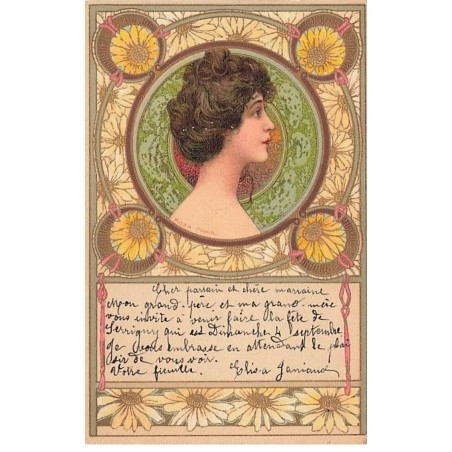 Cher parrain et chère marraine
Mon grand-père et ma grand-mère
vous invite à venir faire la fête de
Serrigny qui est Dimanche 4 septembre
Je vous embrasse en attendant le plai
sir de vous voir.
Votre fieulle. Elisa